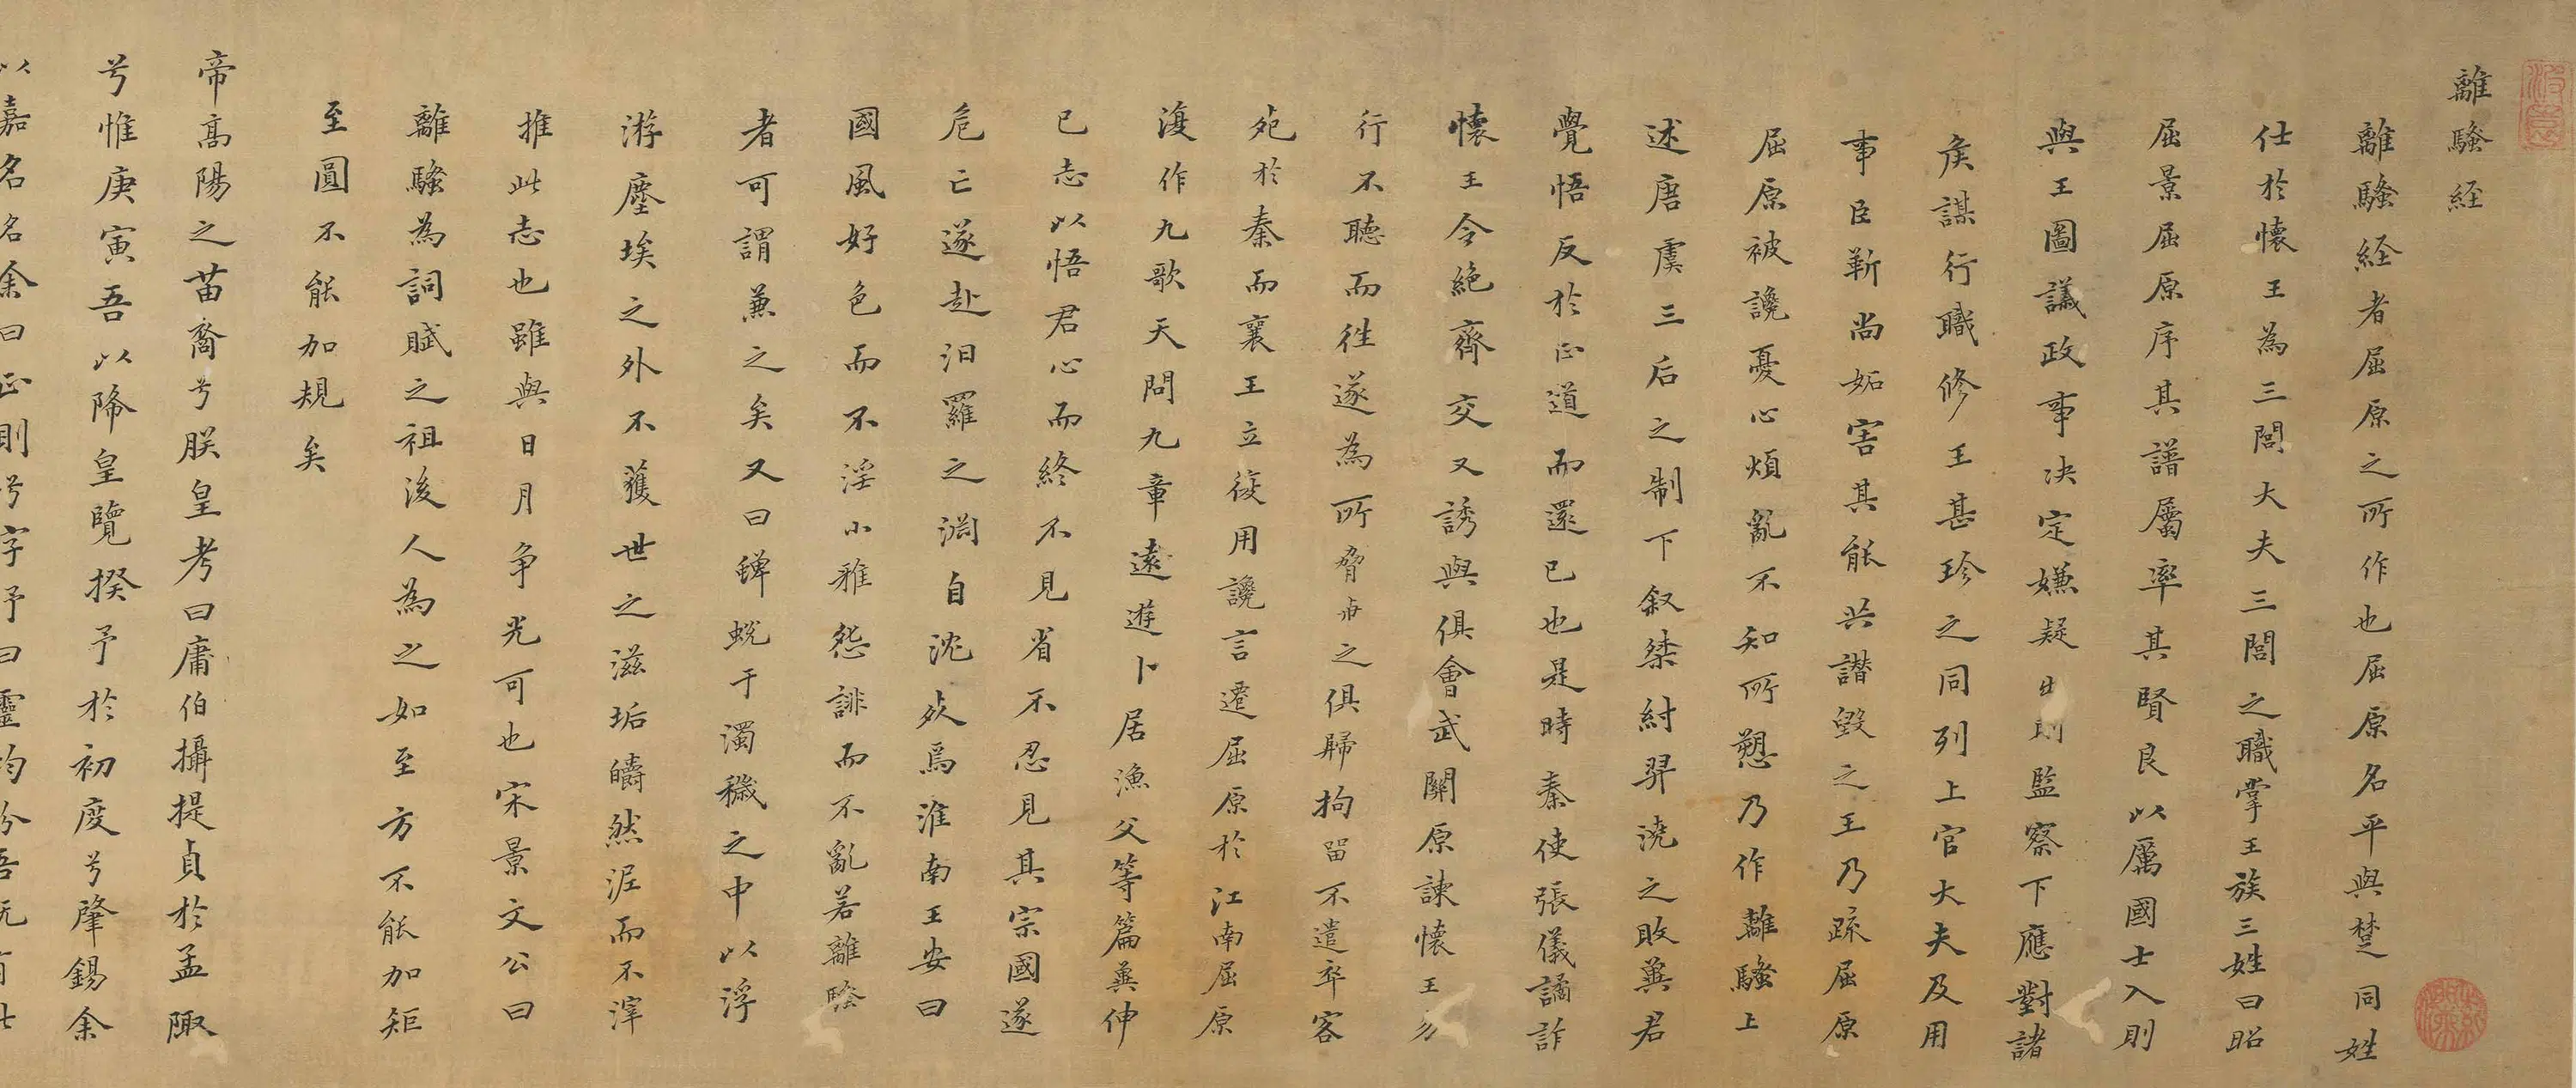 離騷経
離騷経者屈原之所作也屈原名平與楚同姓
仕於懷王為三閭大夫三閭之職掌王族三姓曰昭
屈景屈原序其譜屬率其賢良以厲國士入則
與王圖議政事決定嫌疑出則監察下應對諸
矦謀行職修王甚珍之同列上官大夫及用
事臣靳尚妬害其能共譖毀之王乃疏屈原
屈原被讒憂心煩亂不知所愬乃作離騷上
述唐虞三后之制下叙桀紂羿澆之敗兾君
覺悟反於正道而還已也是時秦使張儀譎詐
懷王令絶齊交又誘與俱會武關原諫懷王勿
行不聽而徃遂為所脅之俱歸拘留不遣卒客
死於秦而襄王立復用讒言遷屈原於江南屈原
復作九歌天問九章遠遊卜居漁父等篇兾伸
已志以悟君心而終不見省不忍見其宗國遂
危亡遂赴汨羅之淵自沈死焉淮南王安曰
國風好色而不淫小雅怨誹而不亂若離騷
者可謂兼之矣又曰蟬蛻于濁穢之中以浮
游塵埃之外不獲世之滋垢皭然泥而不滓
推此志也雖與日月争光可也宋景文公曰
離騷為詞賦之祖後人為之如至方不能加矩
至圓不能加規矣
帝高陽之苗裔兮朕皇考曰庸伯攝提貞於孟陬
兮惟庚寅吾以降皇覽揆予於初度兮肇錫余
以嘉名名余曰正則兮字予曰靈均紛吾既有